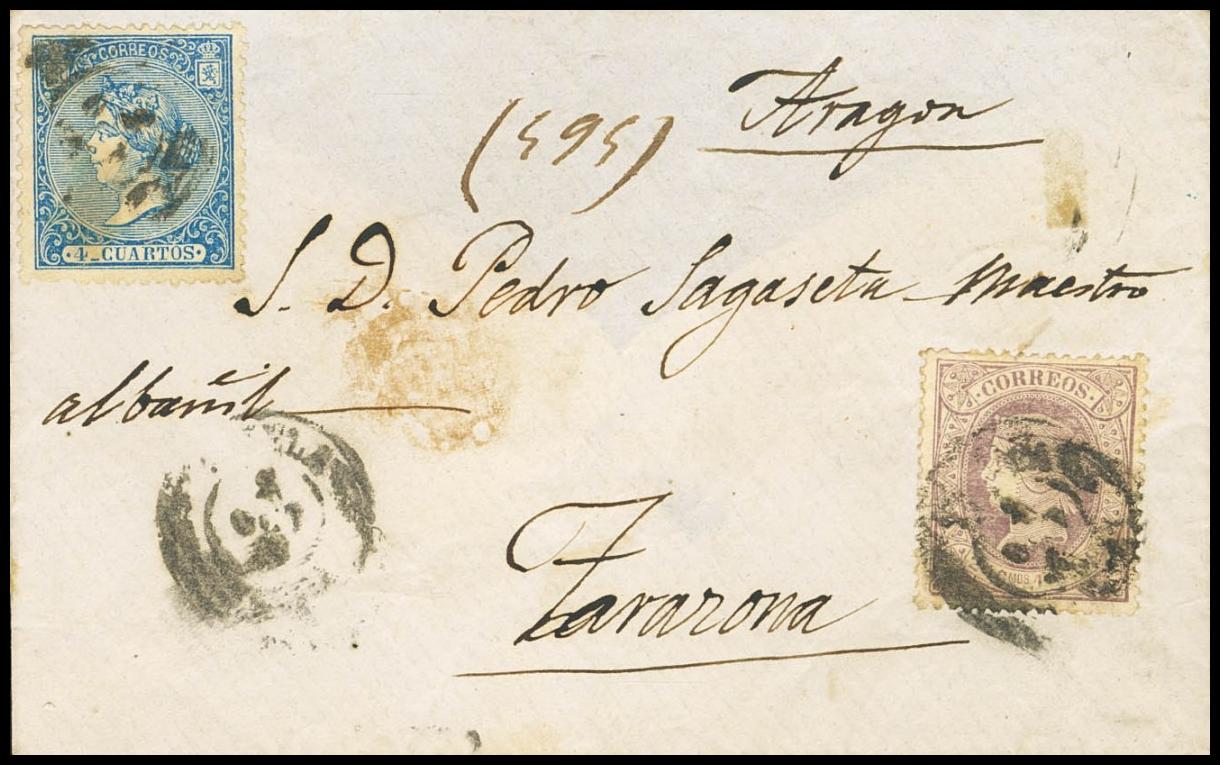 CORREOS
4 CUARTOS
Aragon
(595)
S. D. Pedro Sagaseta Maestro
albañil
CORREOS
Tarazona